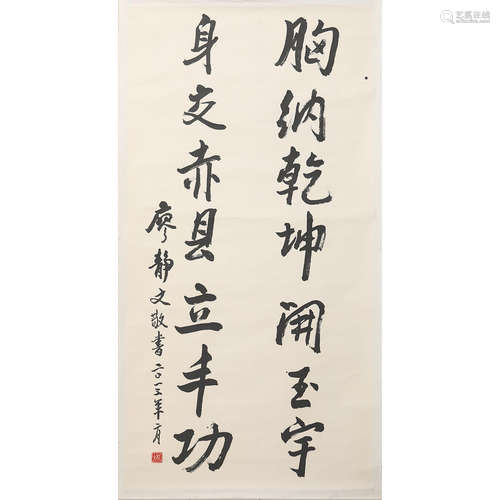 胸纳乾坤开玉宇
身交赤县立丰功
廖静文敬书二〇一三年二月